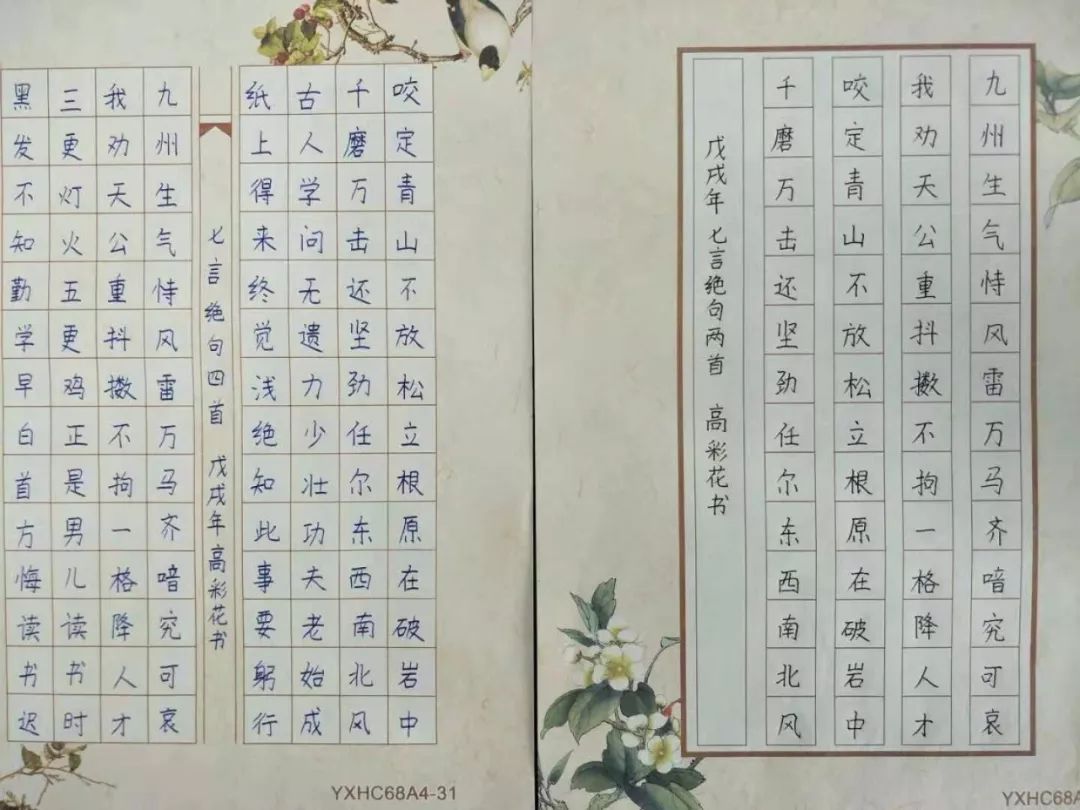 咬定青山不放松立根原在破岩中
千磨万击还坚劲任尔东西南北风
古人学问无遗力少壮功夫老始成
纸上得来终觉浅绝知此事要躬行
七言绝句四首 戊戌年高彩花书
九州生气恃风雷万马齐喑究可哀
我劝天公重抖擞不拘一格降人才
三更灯火五更鸡正是男儿读书时
黑发不知勤学早白首方悔读书迟
YXHC68A4-31
九州生气恃风雷万马齐喑究可哀
我劝天公重抖擞不拘一格降人才
咬定青山不放松立根原在破岩中
千磨万击还坚劲任尔东西南北风
戊戌年 七言绝句两首 高彩花书
YXHC68A